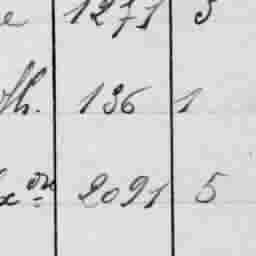 e 1271 3
th. 136 1
x on 2091 5